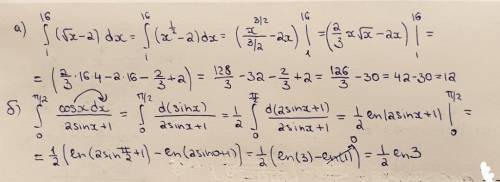 а) ∫₁¹⁶ (√x - 2) dx = ∫₁¹⁶ (x^(1/2) - 2) dx = (x^(3/2)/(3/2) - 2x) |₁¹⁶ = (2/3 x√x - 2x) |₁¹⁶ =
= (2/3 · 16·4 - 2·16 - 2/3 + 2) = 128/3 - 32 - 2/3 + 2 = 126/3 - 30 = 42 - 30 = 12
б) ∫₀^(π/2) cosx dx/(2sinx+1) = ∫₀^(π/2) d(sinx)/(2sinx+1) = 1/2 ∫₀^(π/2) d(2sinx+1)/(2sinx+1) = 1/2 ln(2sinx+1) |₀^(π/2) =
= 1/2 (ln(2sin π/2 + 1) - ln(2sin0+1)) = 1/2 (ln(3) - ln(1)) = 1/2 ln3